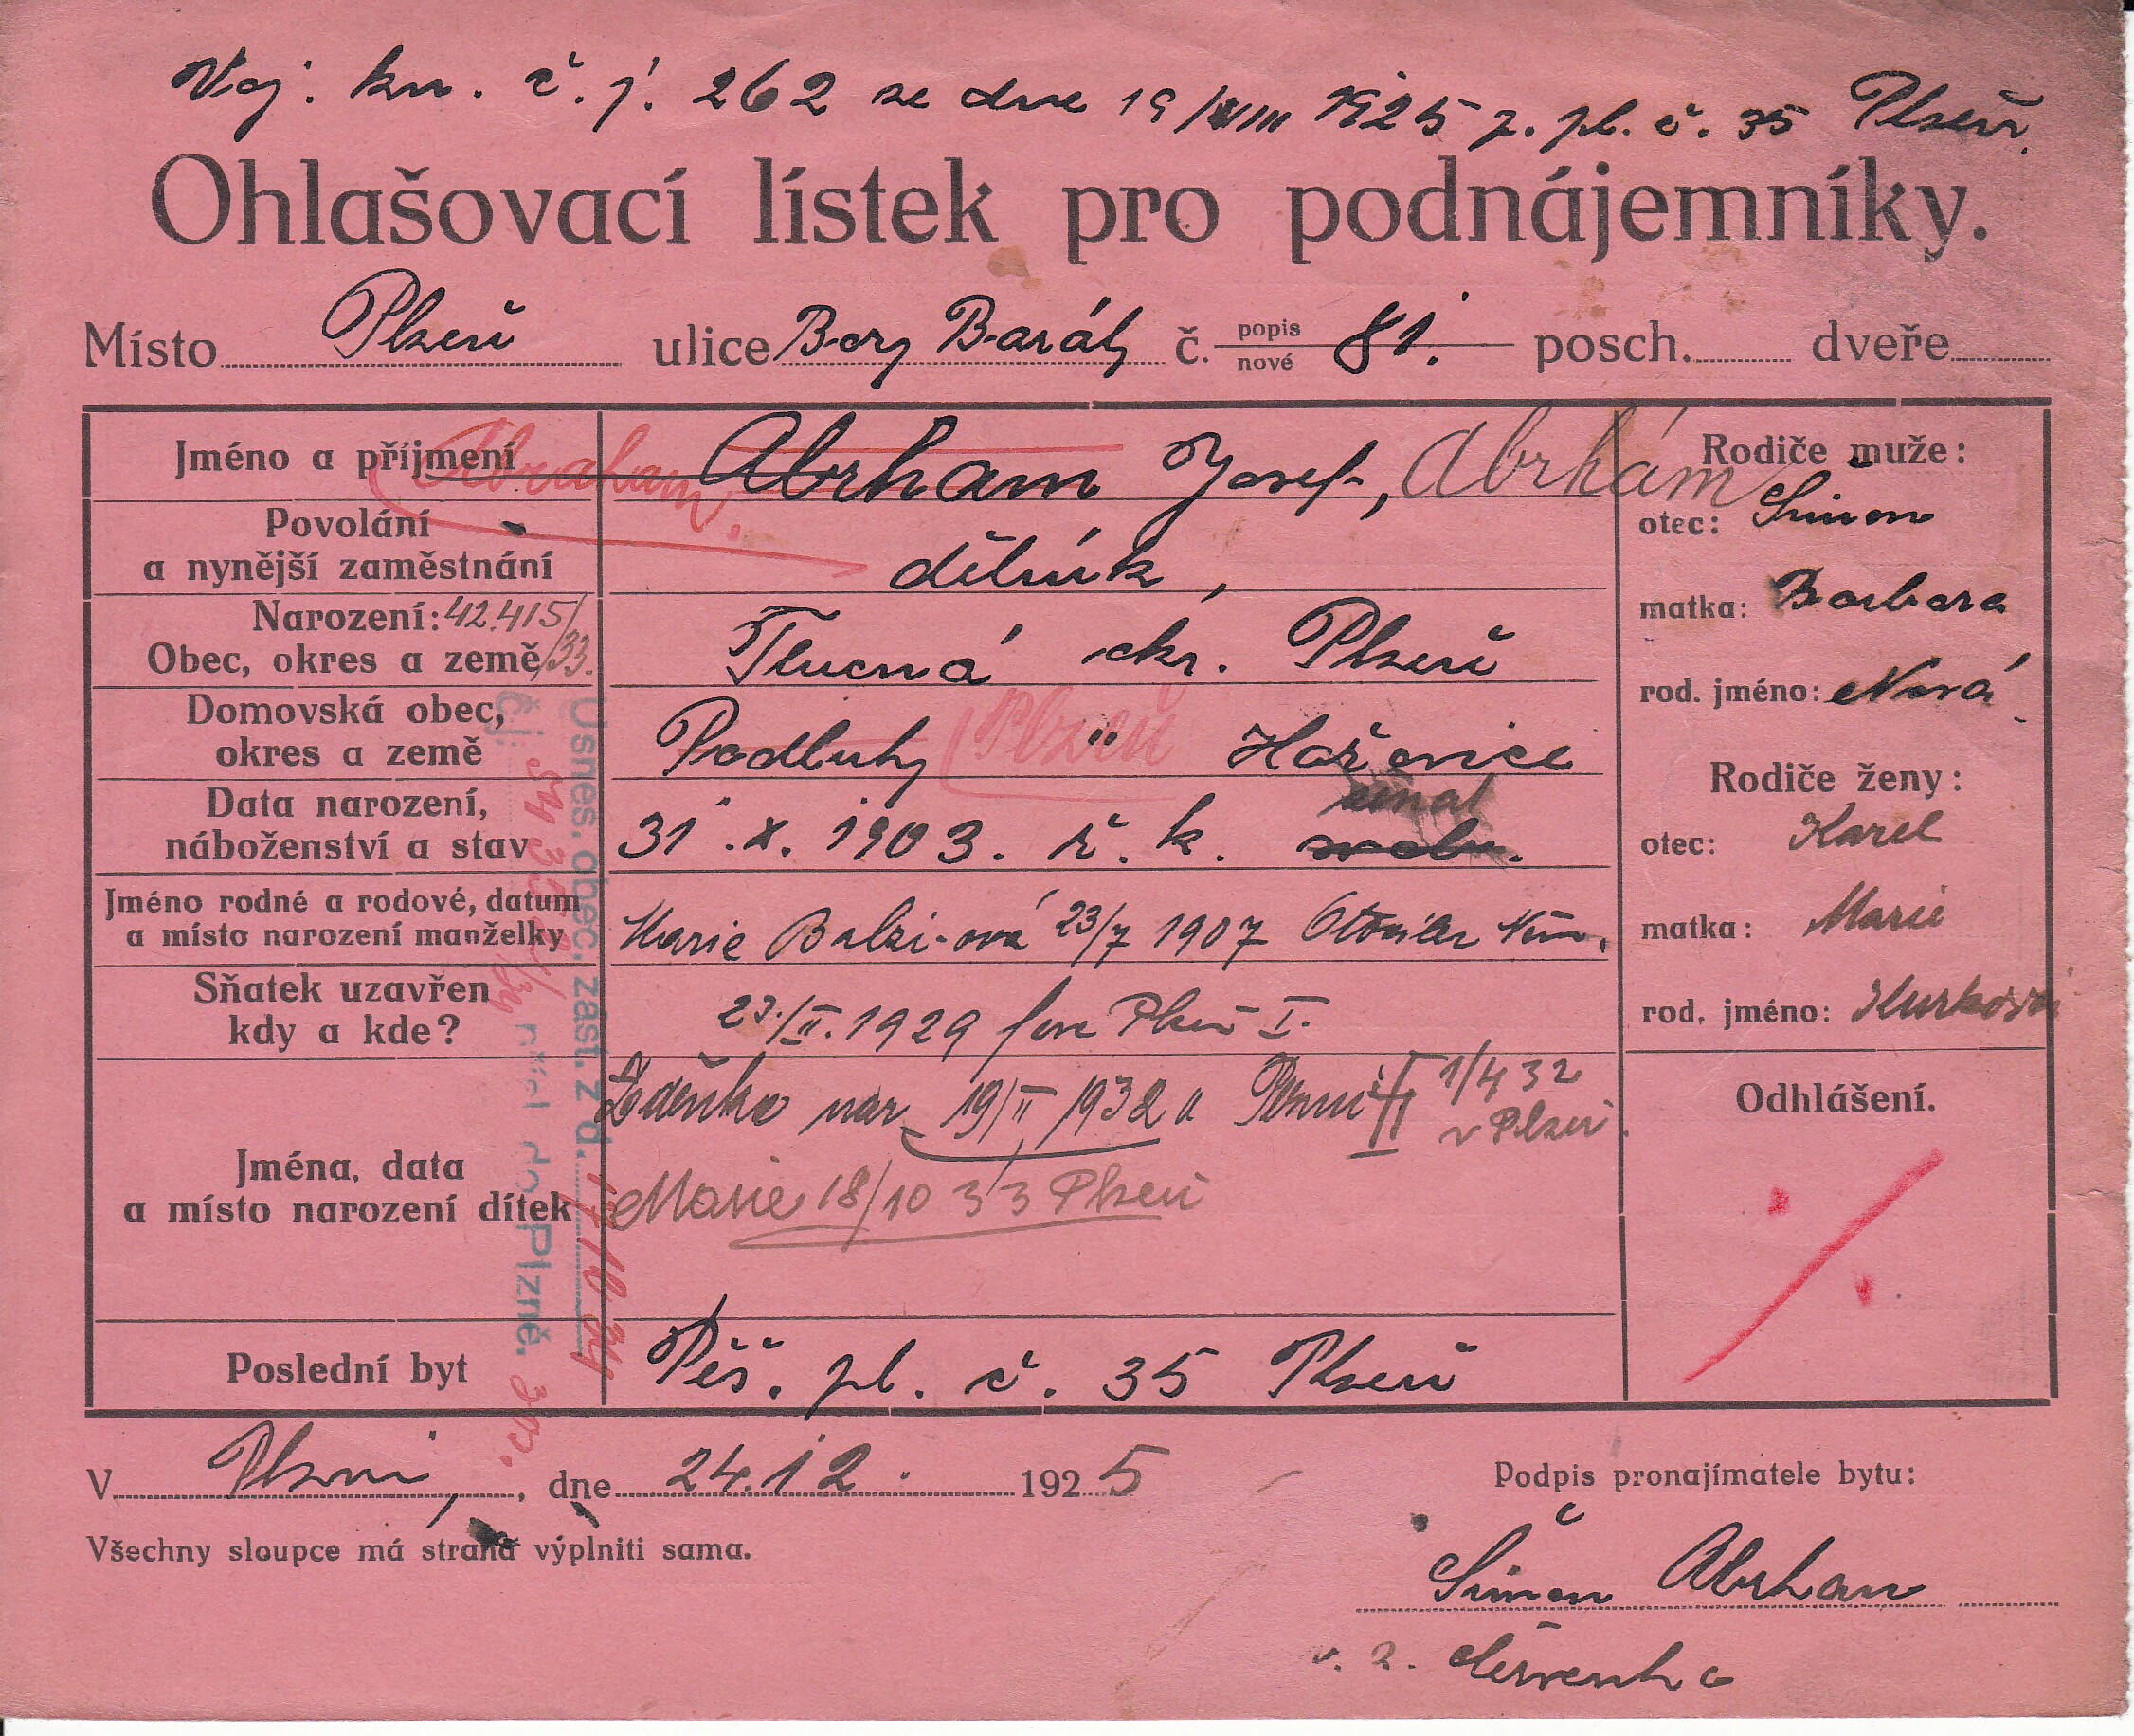 Voj. kn. č. j. 262 ze dne 19/VIII 1925 p. pl. č. 35 Plzeň.
Ohlašovací lístek pro podnájemníky.
Místo Plzeň ulice Bory Barák č. popis nové 81. posch. dveře
Jméno a příjmení Abraham. Abrham Josef, Abrhám
Povolání
a nynější zaměstnání dělník,
Narození: 42.415/33.
Obec, okres a země Tlucná okr. Plzeň
Domovská obec,
okres a země Podluhy Plzeň " Hořovice
Data narození,
náboženství a stav 31. X. 1903. ř. k. svob. ženat
Jméno rodné a rodové, datum
a místo narození manželky Marie 23/7 1907
Sňatek uzavřen
kdy a kde? 23./II. 1929 Plzeň I.
Jména, data
a místo narození dítek Zdeňka nar. 19/II 1932 v Plzni II 1/4 32 v Plzni
Marie 18/10 33 Plzeň
Poslední byt Pěš. pl. č. 35 Plzeň
Usnes. obec. zast. z d. 17/10 34
čj. do Plzně.
Rodiče muže:
otec: Šimon
matka: Barbora
rod. jméno: Nová
Rodiče ženy:
otec: Karel
matka: Marie
rod. jméno:
Odhlášení.
V Plzni, dne 24. 12. 1925
Všechny sloupce má strana vyplniti sama.
Podpis pronajímatele bytu:
Šimon Abrham
v. z. Červenka